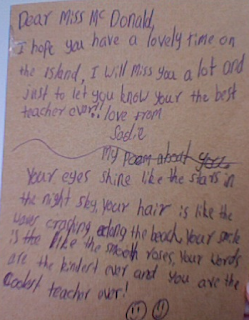 Dear Miss McDonald,
I hope you have a lovely time on
the island, I will Miss you a lot and
just to let you know your the best
teacher ever!! love from
Sadie
My Poem about you
Your eyes shine like the stars in
the night sky, your hair is like the
waves crashing along the beach, Your smile
is the like the smooth roses, Your words
are the kindest ever and you are the
Coolest teacher ever!